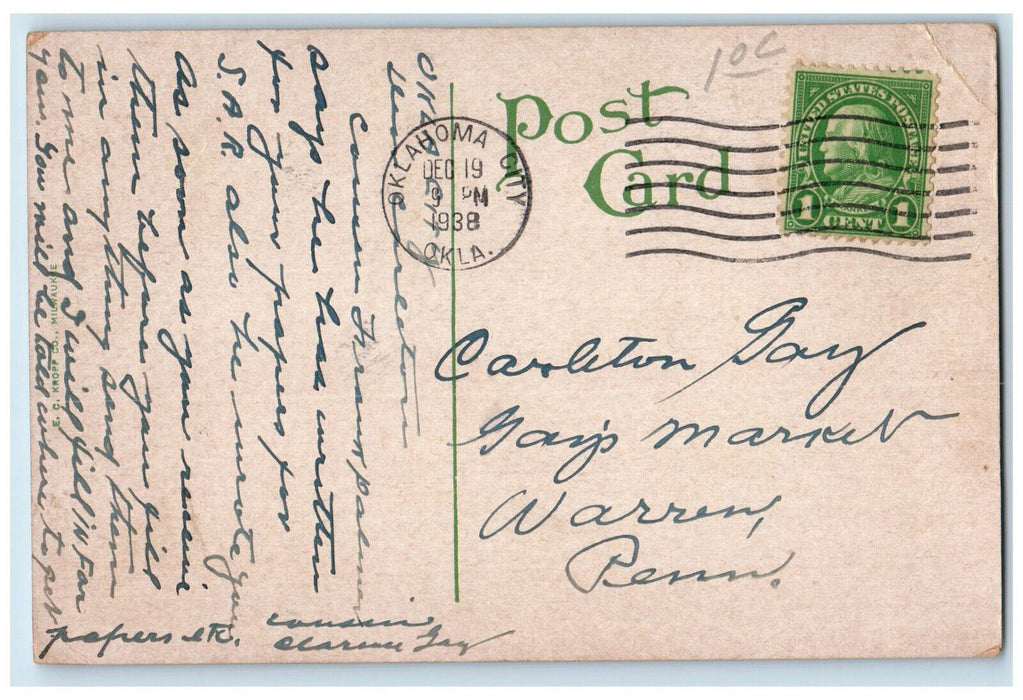 10¢
Post
Card
UNITED STATES POSTAGE
1 CENT 1
OKLAHOMA CITY
DEC 19
9 PM
1938
OKLA.
Carleton Gay
Gay's Market
Warren,
Penn.
Okla City
Dear Carleton
Cousin Frank Palmer
says he has written
for your papers for
S.A.R. also he wrote you
As soon as you receive
them before you fill
in any thing send them
to me and I will fill in for
you. You will be told where to get
papers etc. cousin
Clarence Gay
E. C. KROPP CO., MILWAUKEE